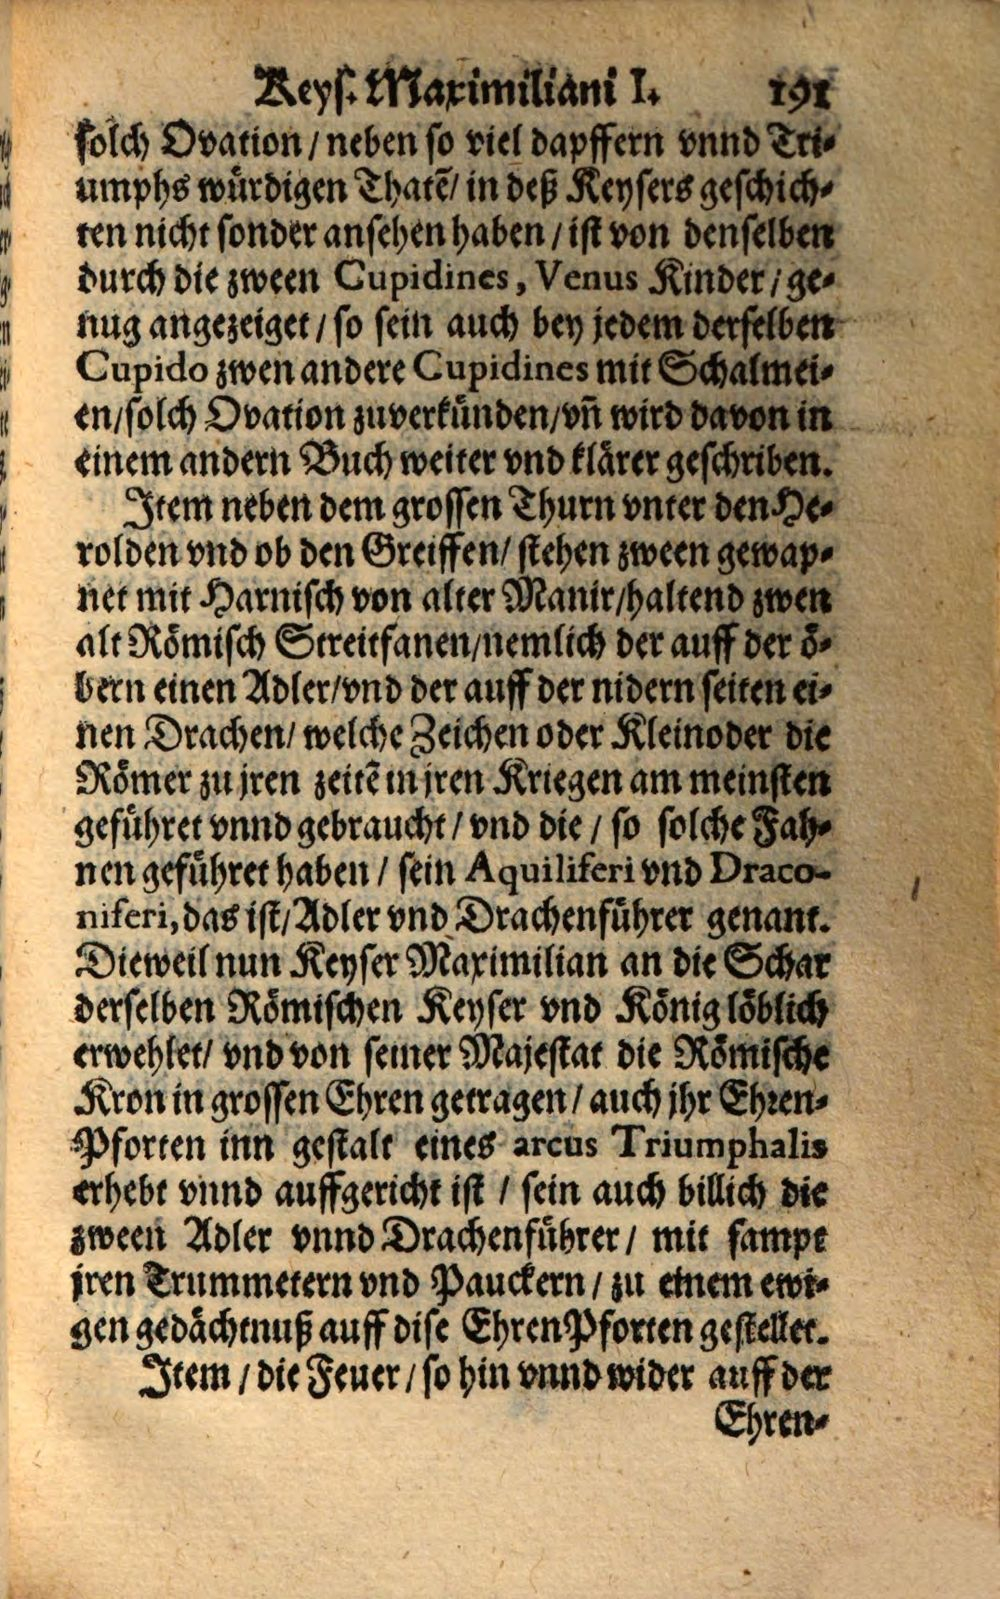 Keys. Maximiliani I. 191
solch Ovation / neben so viel dapffern vnnd Tri-
umphs würdigen Thatē / in deß Keysers geschich-
ten nicht sonder ansehen haben / ist von denselben
durch die zween Cupidines, Venus Kinder / ge-
nug angezeiget / so sein auch bey jedem derselben
Cupido zwen andere Cupidines mit Schalmei-
en / solch Ovation zuverkünden / vñ wird davon in
einem andern Buch weiter vnd klärer geschriben.
Item neben dem grossen Thurn vnter den He-
rolden vnd ob den Greiffen / stehen zween gewap-
net mit Harnisch von alter Manir / haltend zwen
alt Römisch Streitfanen / nemlich der auff der ö-
bern einen Adler / vnd der auff der nidern seiten ei-
nen Drachen / welche Zeichen oder Kleinoder die
Römer zu jren zeitē in jren Kriegen am meinsten
geführet vnnd gebraucht / vnd die / so solche Fah-
nen geführet haben / sein Aquiliferi vnd Draco-
niferi, das ist / Adler vnd Drachenführer genant.
Dieweil nun Keyser Maximilian an die Schar
derselben Römischen Keyser vnd König löblich
erwehlet / vnd von seiner Majestat die Römische
Kron in grossen Ehren getragen / auch jhr Ehren-
Pforten inn gestalt eines arcus Triumphalis
erhebt vnnd auffgericht ist / sein auch billich die
zween Adler vnnd Drachenführer / mit sampt
jren Trummetern vnd Pauckern / zu einem ewi-
gen gedächtnuß auff dise EhrenPforten gestellet.
Item / die Feuer / so hin vnnd wider auff der
Ehren-